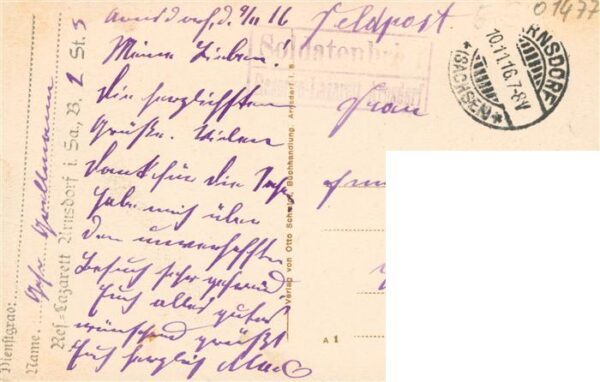 Arnsdorf, d. 9/11 16
Meine Lieben!
Die herzlichsten
Grüße. Vielen
Dank für die
habe mich über
den unverhofften
Besuch sehr gefreut.
Euch alles gute
wünschend grüßt
Euch herzlich
Feldpost
Frau
Soldatenbrief
Reserve-Lazarett Arnsdorf
ARNSDORF
10.11.16.7-8V
*(SACHSEN)*
01477
Verlag von Otto Buchhandlung, Arnsdorf i. S.
A 1
Dienstgrad:
Name:
Res-Lazarett Arnsdorf i. Sa., B. 2 St. 5